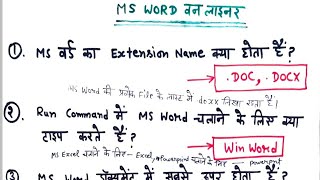 MS WORD वन लाइनर
①. MS वर्ड का Extension Name क्या होता है?
.DOC, .DOCX
MS Word की प्रत्येक File के लास्ट में docx लिखा रहता है।
②. Run Command में MS Word चलाने के लिए क्या
टाइप करते हैं?
Win Word
MS Excel चलाने के लिए- Excel, Powerpoint चलाने के लिए - powerpoint
③. MS Word डॉक्यूमेंट में सबसे ऊपर होता है?